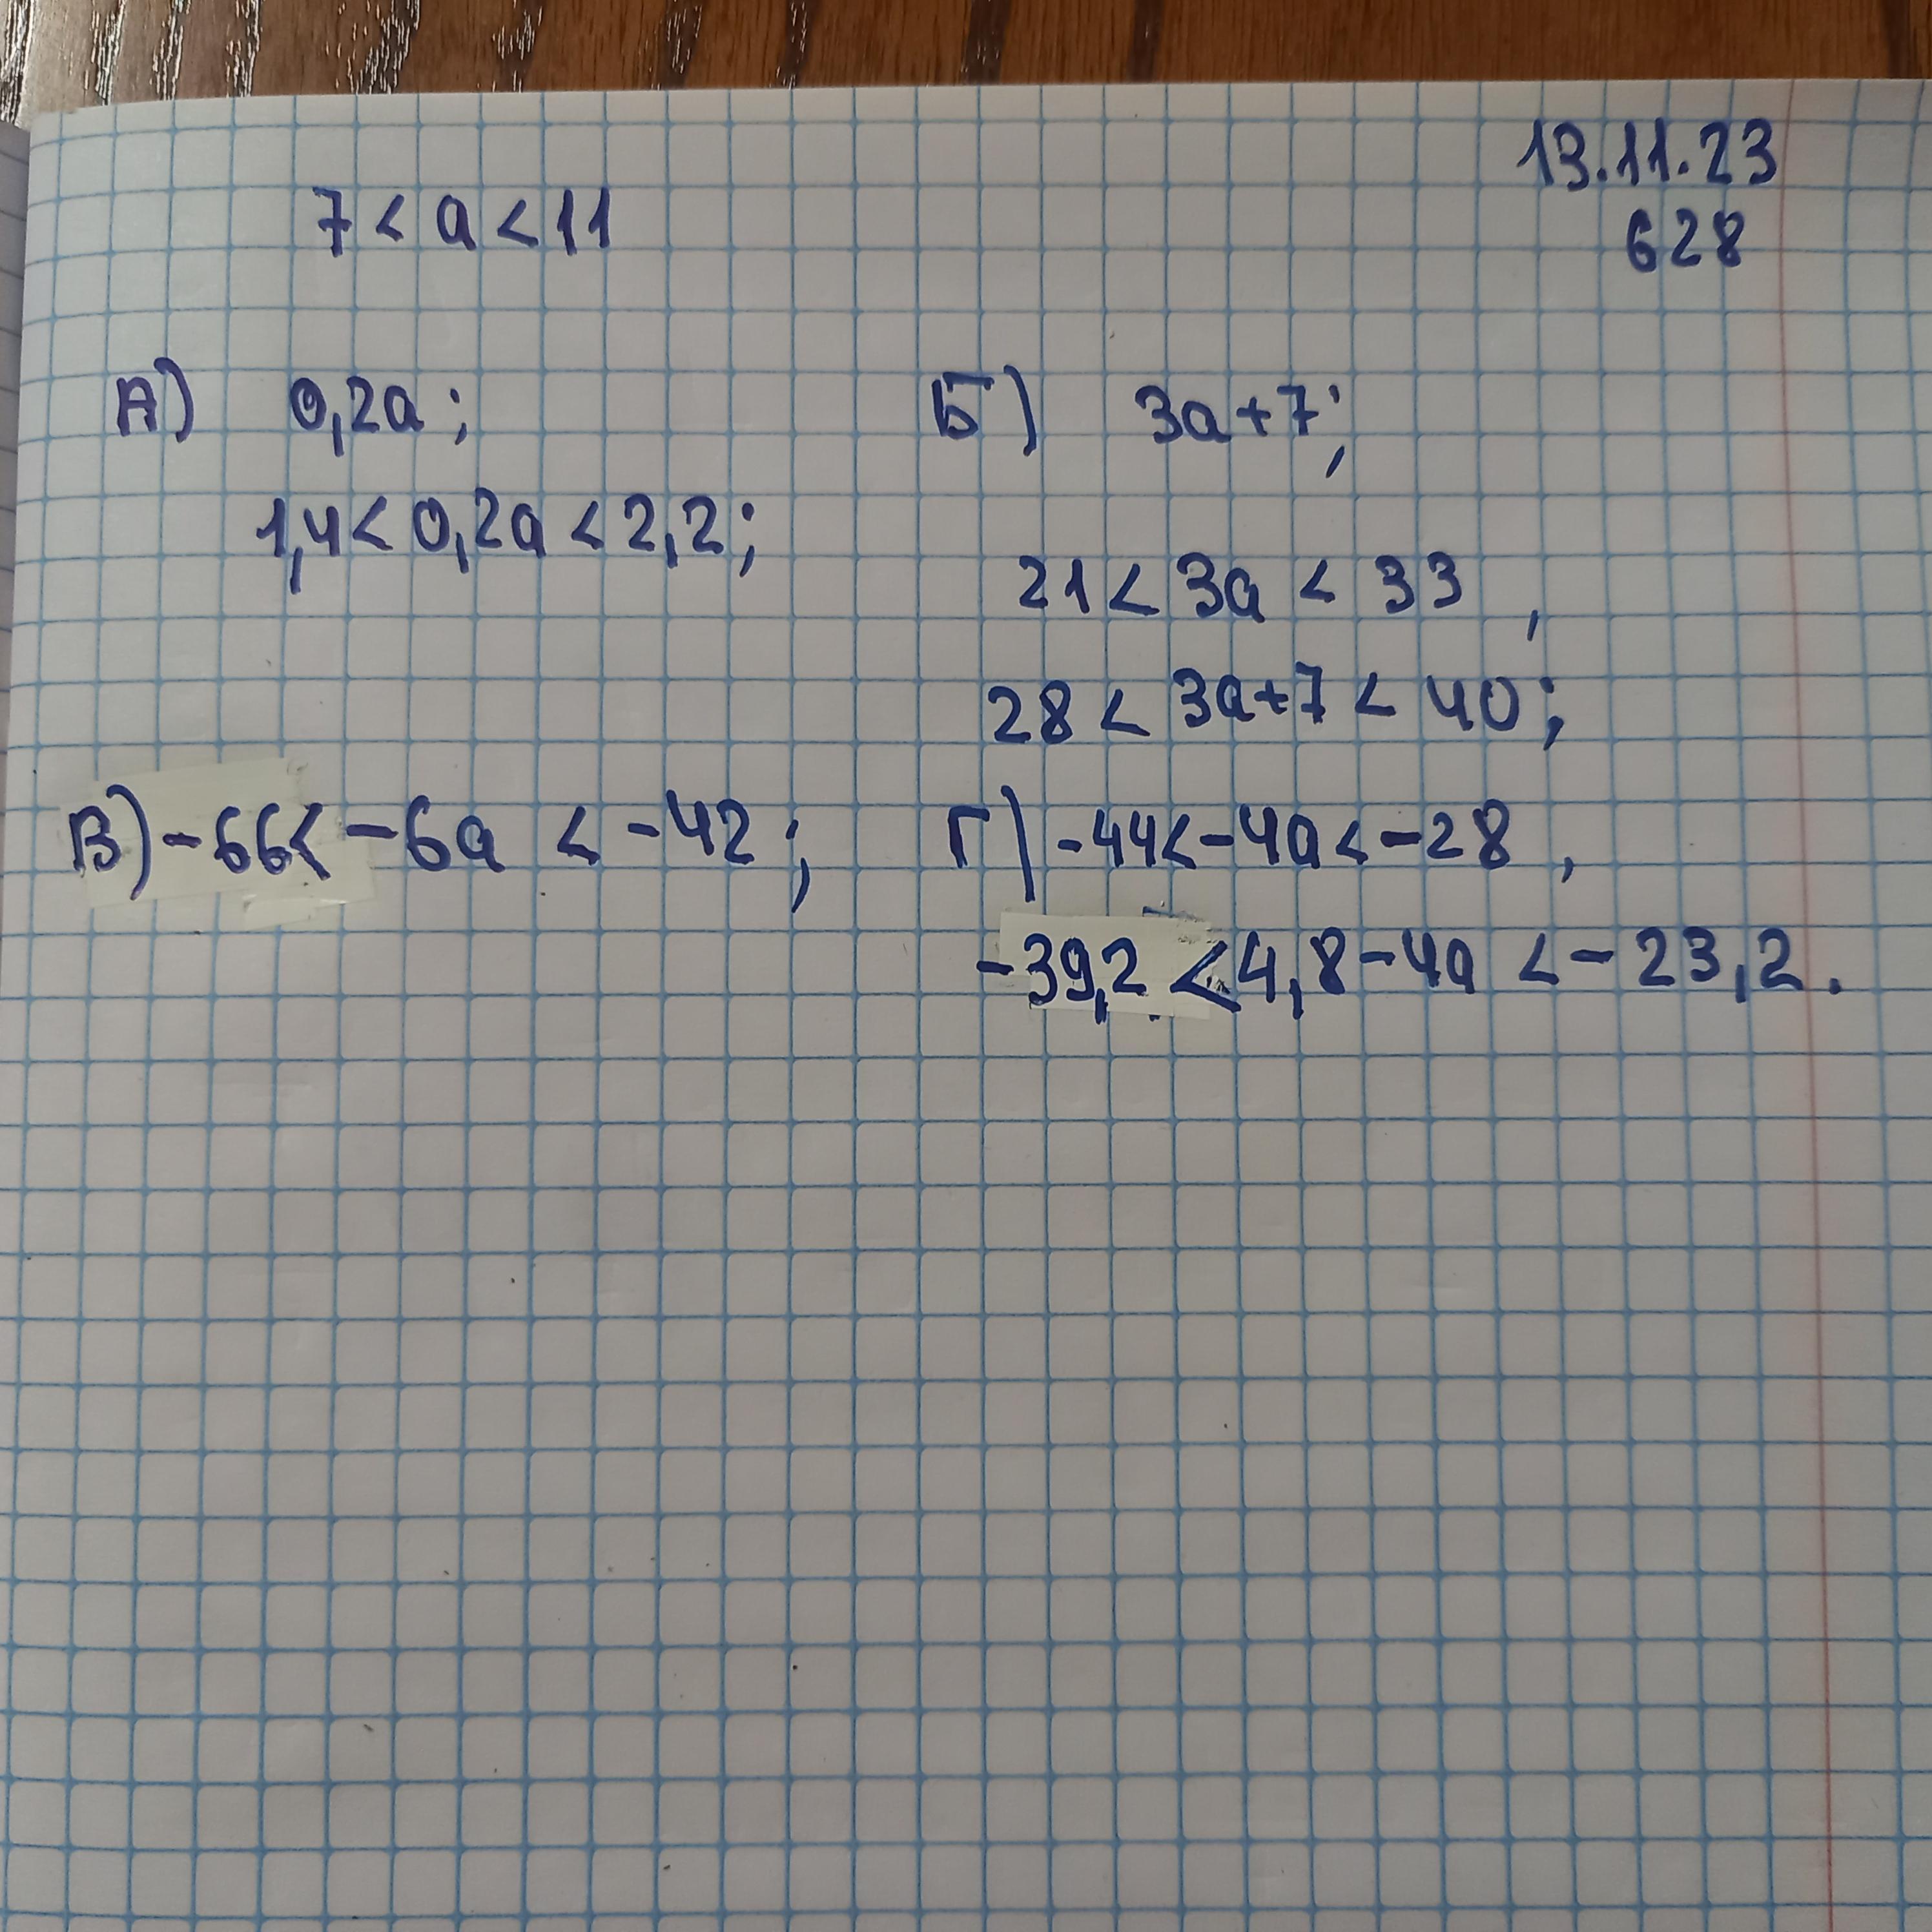 13.11.23
7 < a < 11
628
А) 0,2a;
Б) 3a+7;
1,4 < 0,2a < 2,2;
21 < 3a < 33,
28 < 3a+7 < 40;
В) -66 < -6a < -42;
Г) -44 < -4a < -28,
-39,2 < 4,8-4a < -23,2.